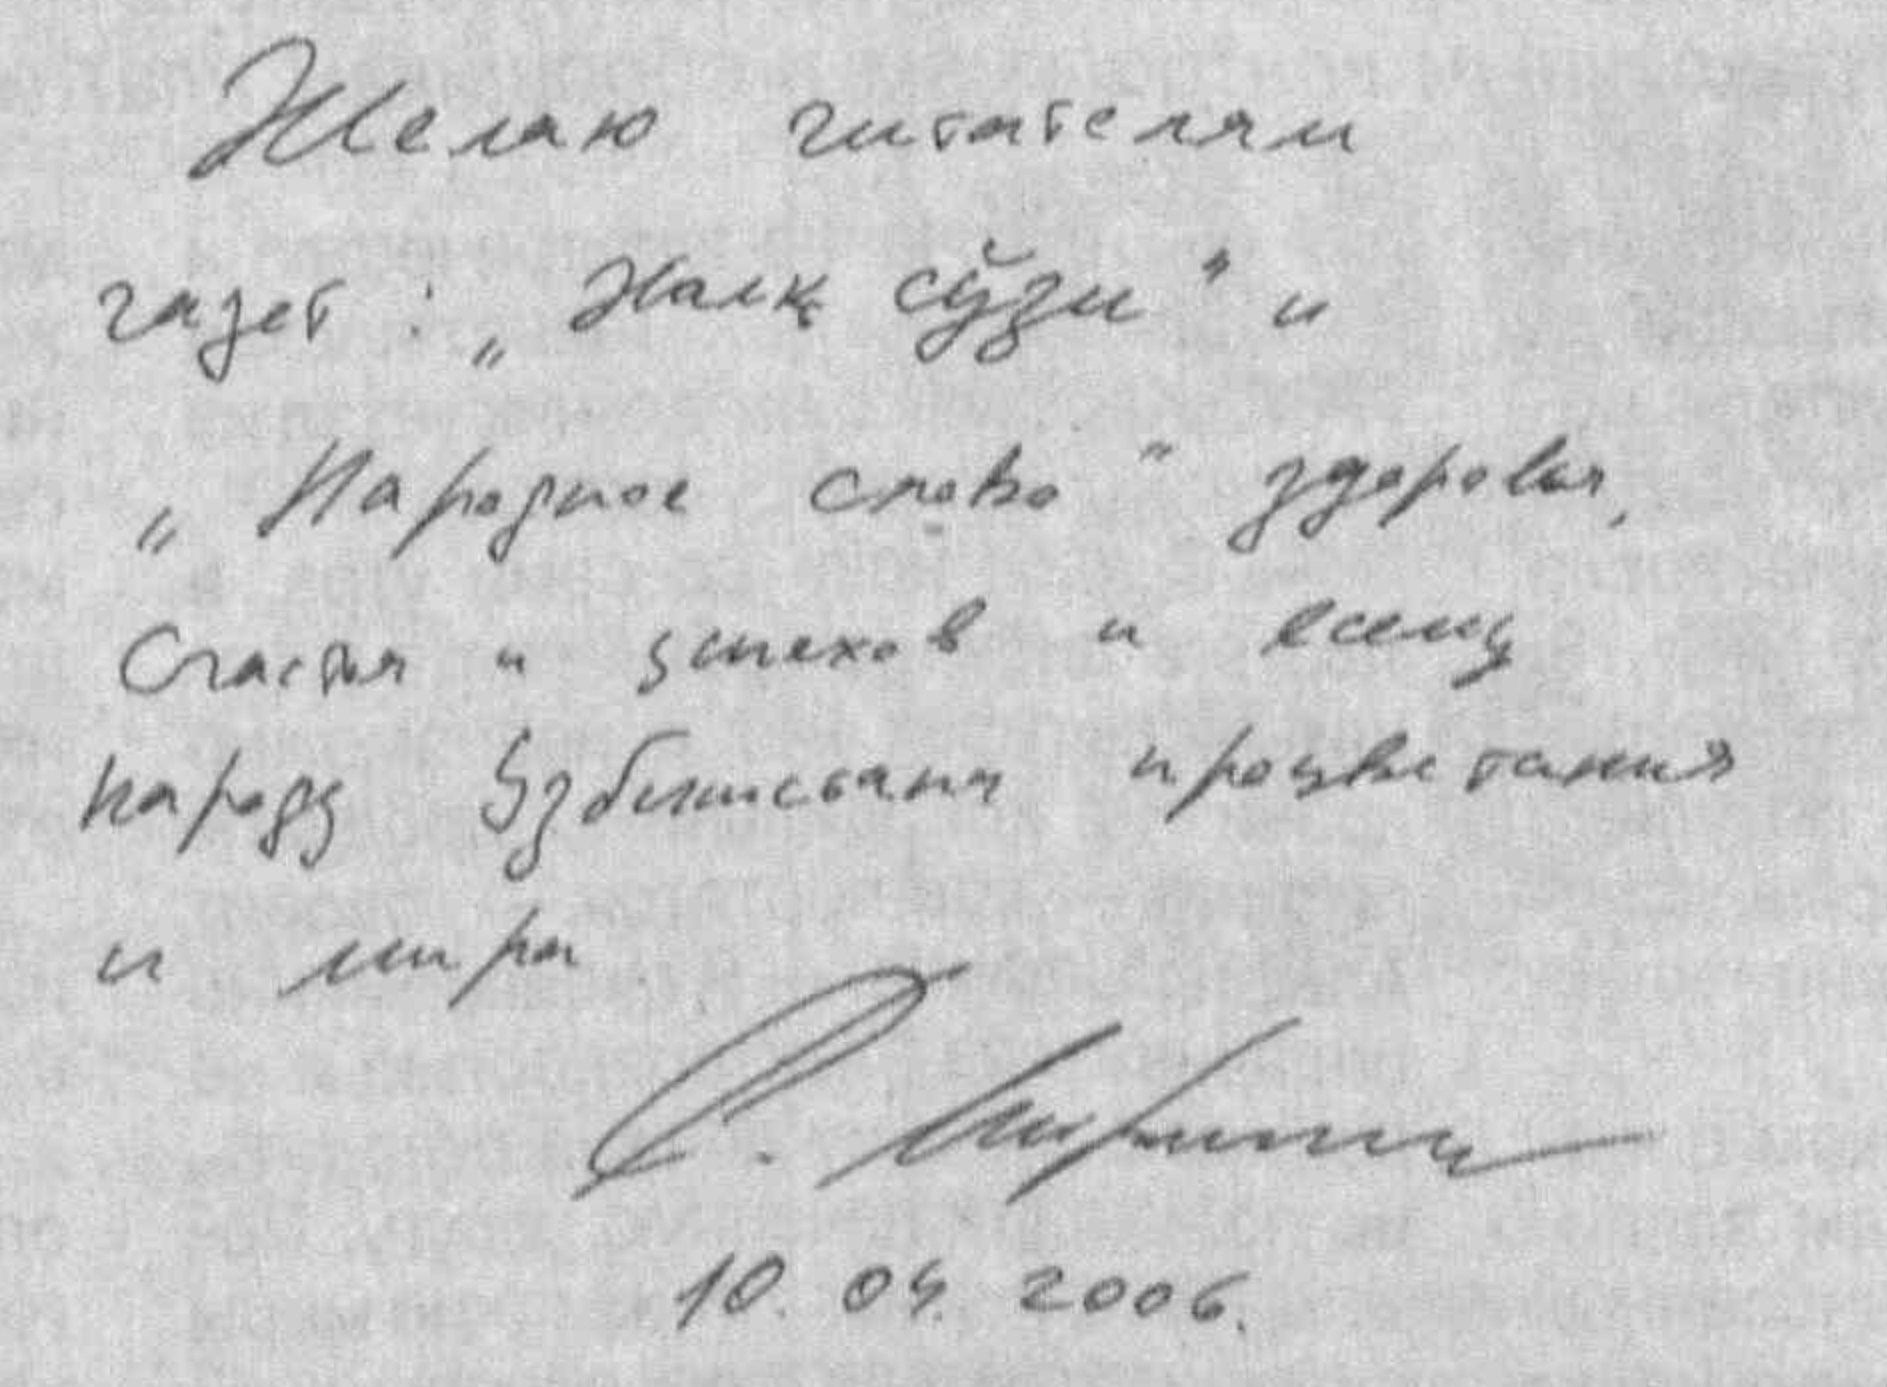 Желаю читателям
газет: „Халқ сўзи" и
„Народное слово" здоровья,
Счастья и успехов и всему
народу Узбекистана процветания
и мира
10.04.2006.